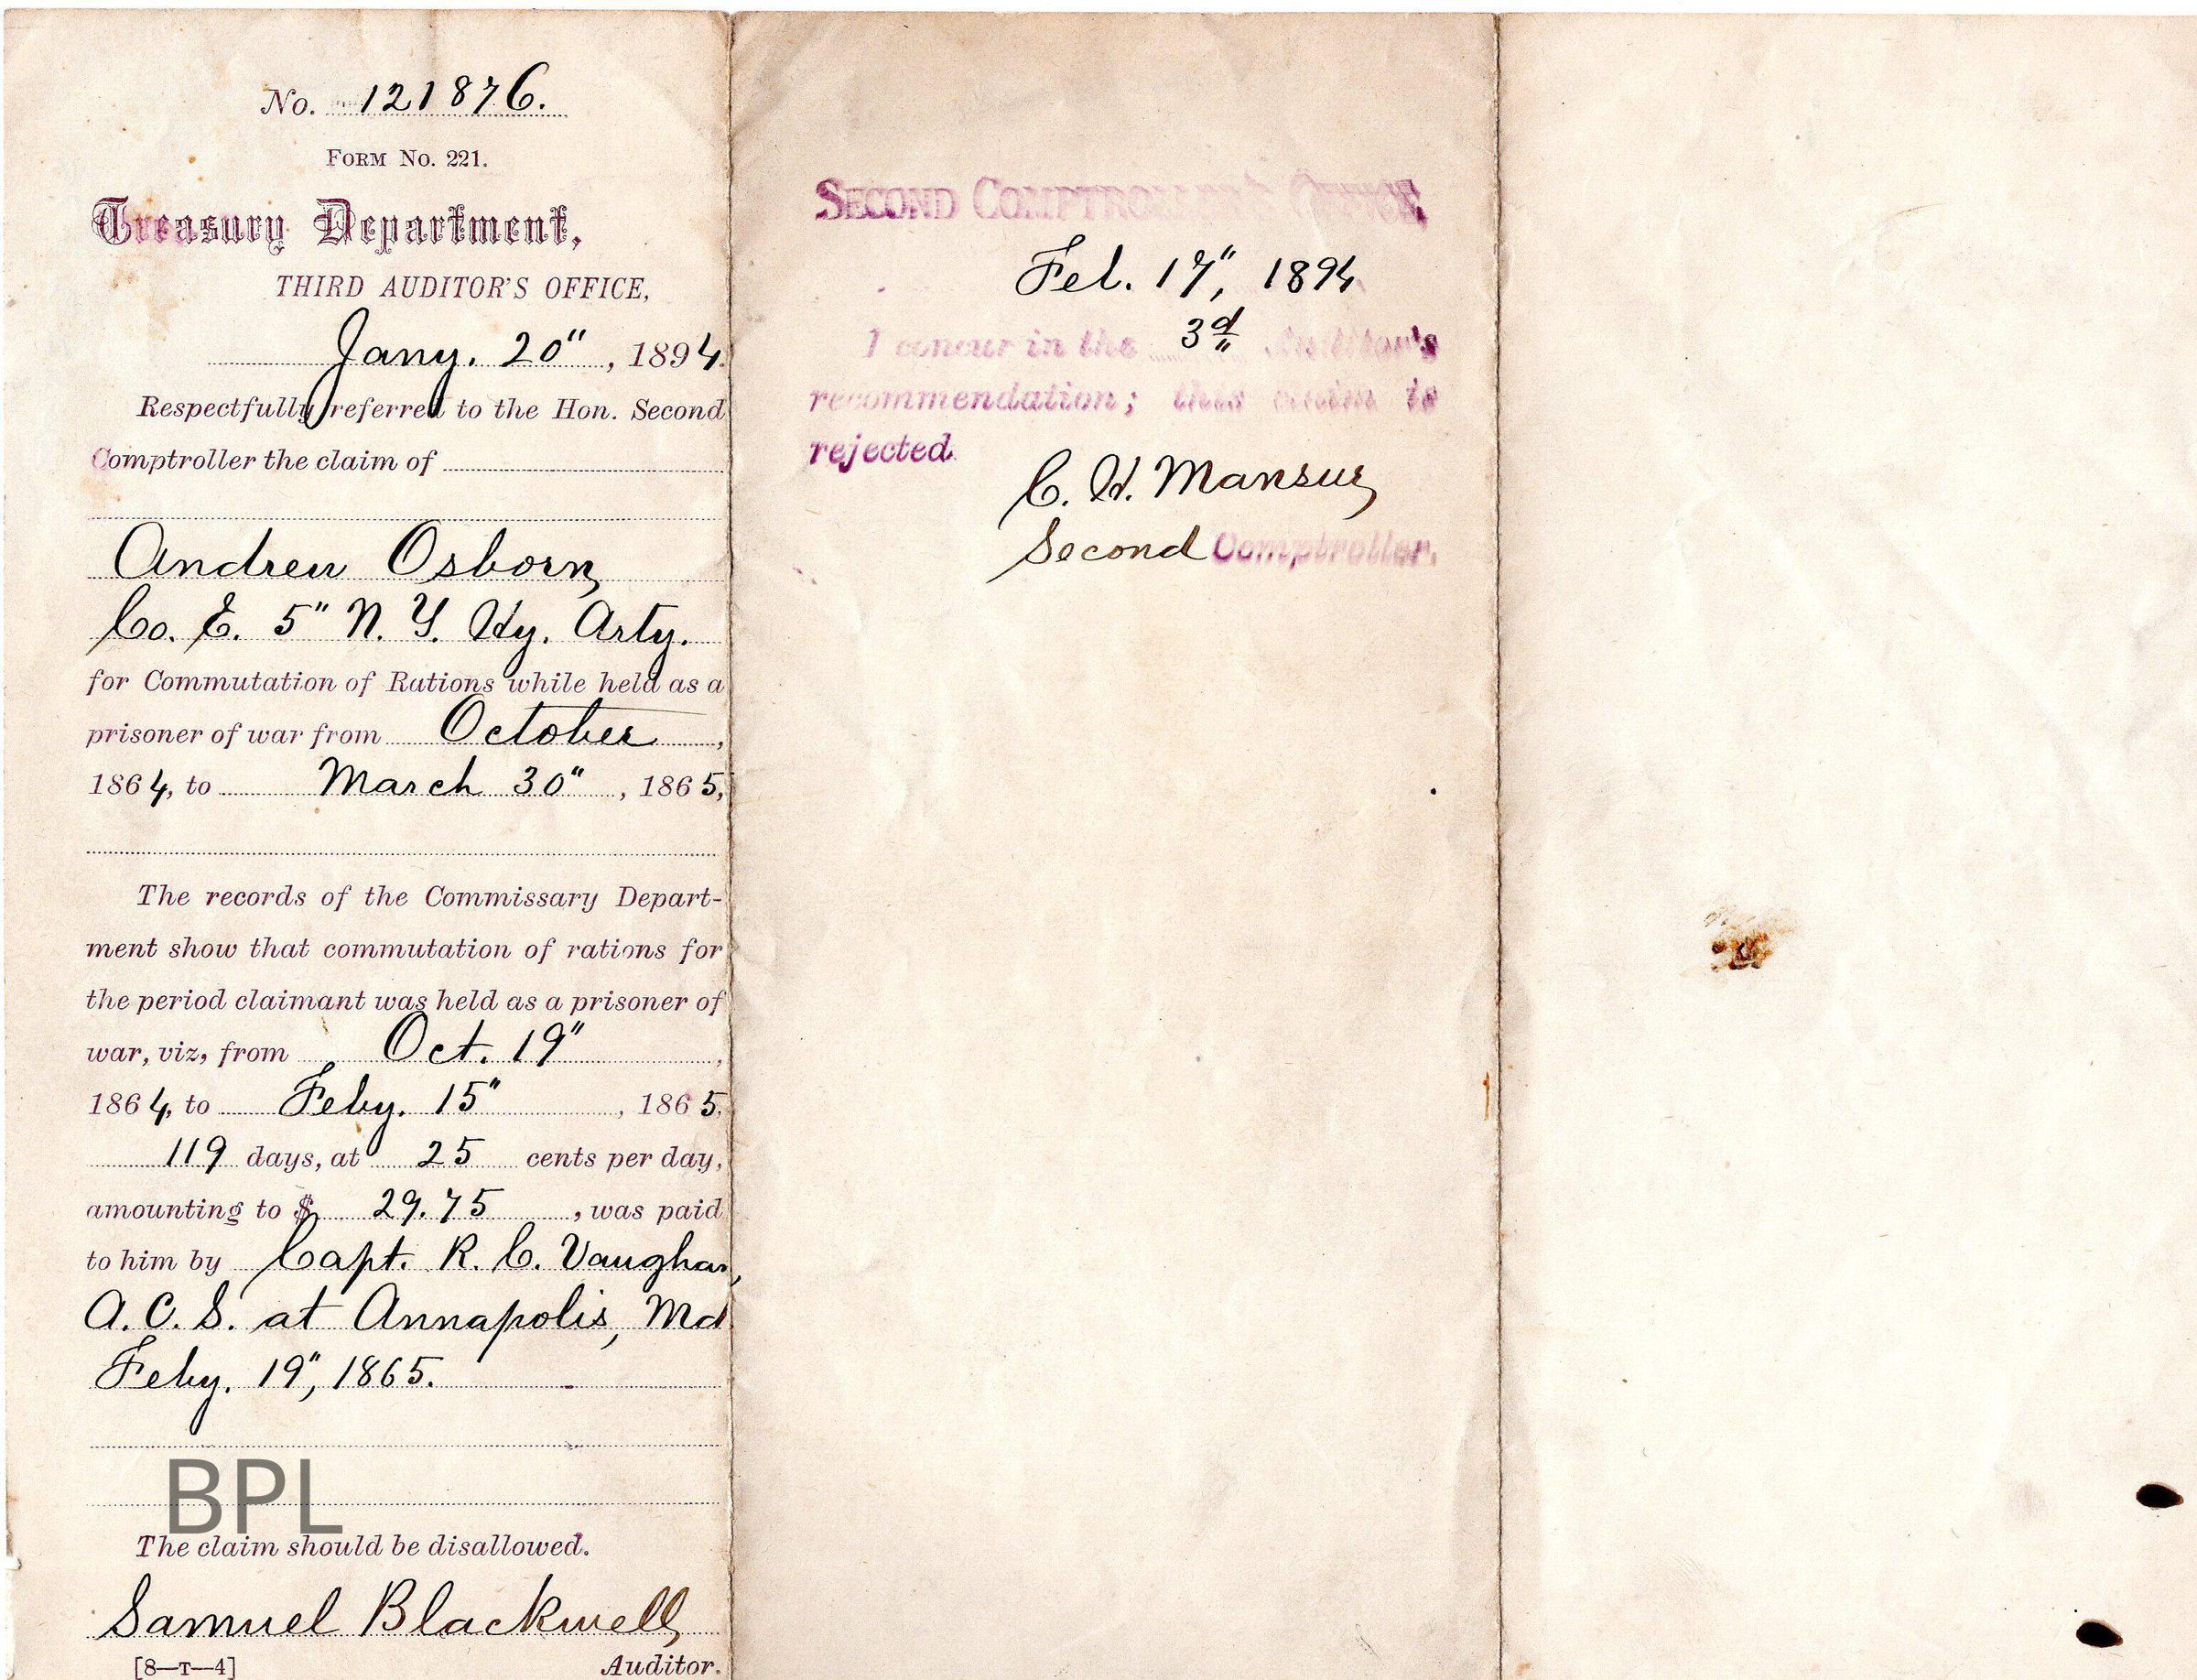 No. 121876.
FORM No. 221.
Treasury Department,
THIRD AUDITOR'S OFFICE,
Jany. 20", 1894.
Respectfully referred to the Hon. Second
Comptroller the claim of
Andrew Osborn,
Co. E. 5" N. Y. Hy. Arty.
for Commutation of Rations while held as a
prisoner of war from October,
1864, to March 30", 1865,
The records of the Commissary Depart-
ment show that commutation of rations for
the period claimant was held as a prisoner of
war, viz, from Oct. 19",
1864, to Feby. 15", 1865,
119 days, at 25 cents per day,
amounting to $ 29.75, was paid
to him by Capt. R. C. Vaughan,
A. C. S. at Annapolis, Md
Feby. 19", 1865.
BPL
The claim should be disallowed.
Samuel Blackwell,
[8—T—4] Auditor.
SECOND COMPTROLLER'S OFFICE,
Feb. 17", 1894
I concur in the 3d Auditor's
recommendation; this claim is
rejected.
C. H. Mansur,
Second Comptroller.